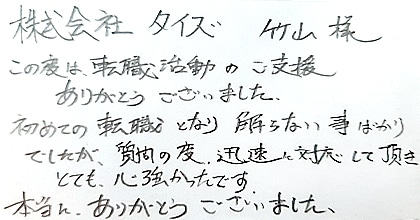 株式会社 タイズ 竹山 様
この度は、転職活動のご支援
ありがとうございました。
初めての転職となり解らない事ばかり
でしたが、質問の度、迅速に対応して頂き
とても、心強かったです。
本当に、ありがとうございました。